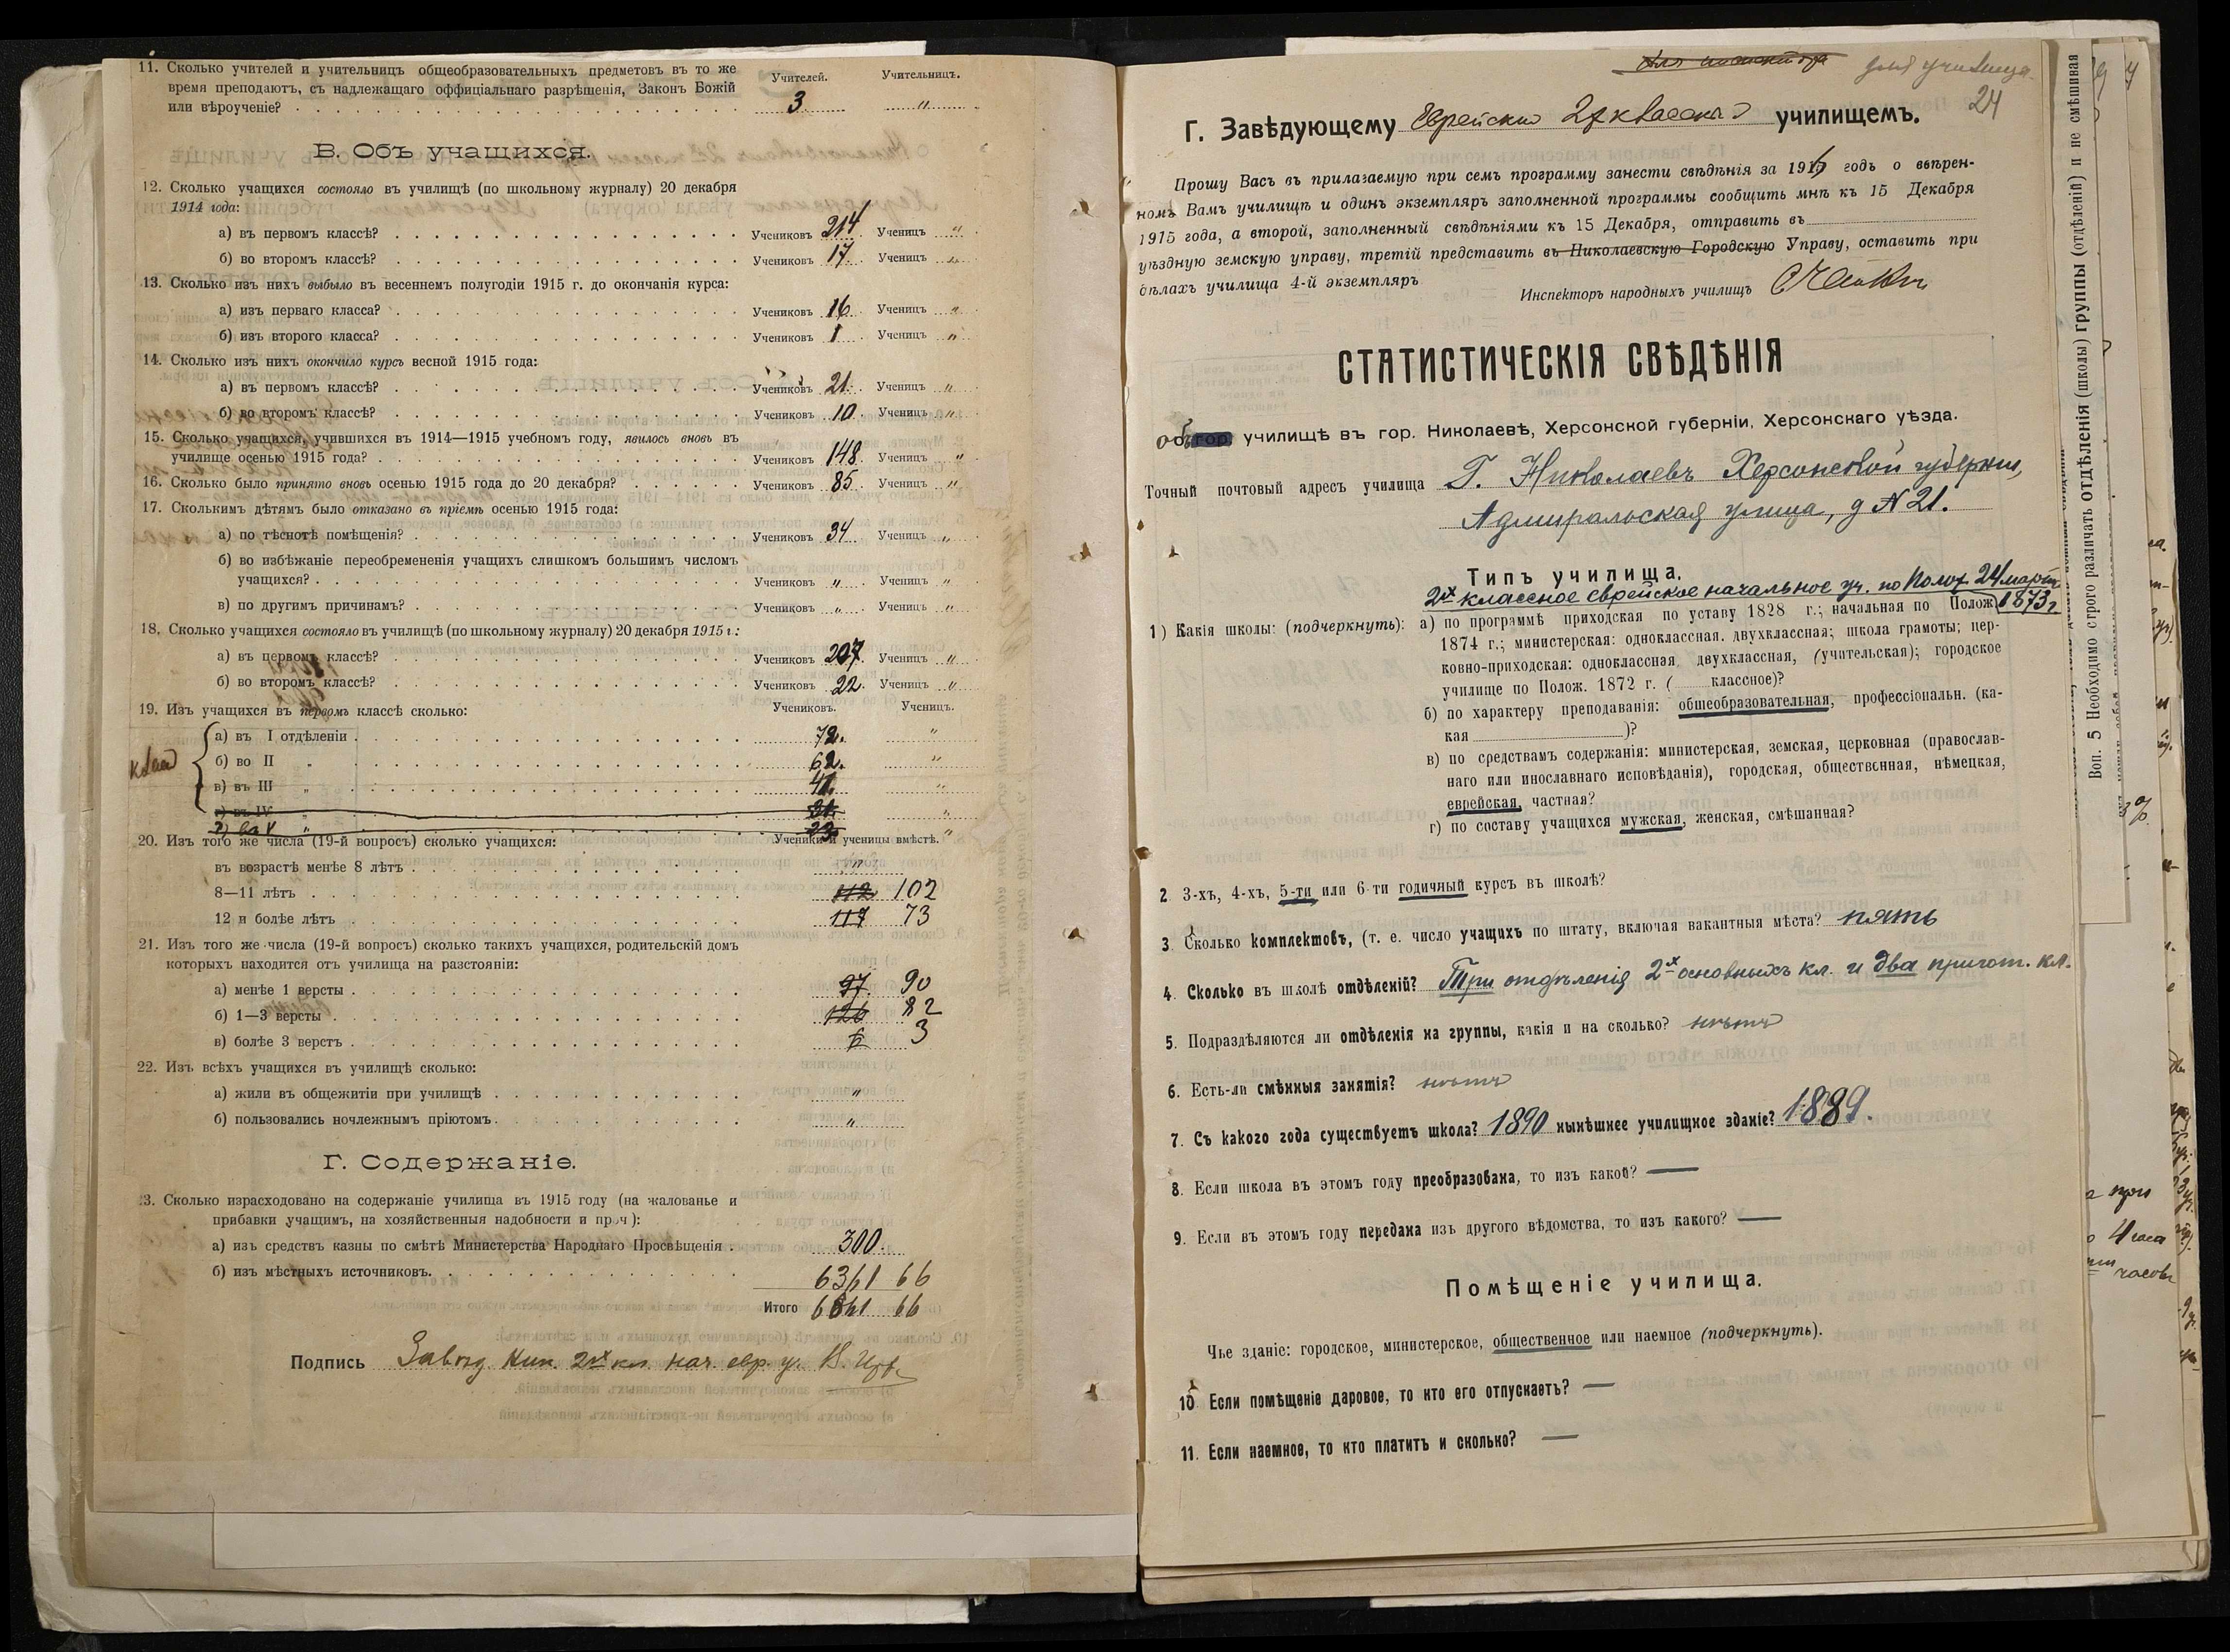 11. Сколько учителей и учительницъ общеобразовательныхъ предметовъ въ то же
время преподаютъ, съ надлежащаго оффиціальнаго разрѣшенія, Законъ Божій
или вѣроученіе?
Учителей. Учительницъ.
3 "
В. Объ учащихся.
12. Сколько учащихся состояло въ училищѣ (по школьному журналу) 20 декабря
1914 года:
а) въ первомъ классѣ? Учениковъ 214 Ученицъ "
б) во второмъ классѣ? Учениковъ 17 Ученицъ "
13. Сколько изъ нихъ выбыло въ весеннемъ полугодіи 1915 г. до окончанія курса:
а) изъ перваго класса? Учениковъ 16 Ученицъ "
б) изъ второго класса? Учениковъ 1 Ученицъ "
14. Сколько изъ нихъ окончило курсъ весной 1915 года:
а) въ первомъ классѣ? Учениковъ 21. Ученицъ "
б) во второмъ классѣ? Учениковъ 10. Ученицъ "
15. Сколько учащихся, учившихся въ 1914—1915 учебномъ году, явилось вновь въ
училище осенью 1915 года? Учениковъ 148 Ученицъ "
16. Сколько было принято вновь осенью 1915 года до 20 декабря? Учениковъ 85 Ученицъ "
17. Сколькимъ дѣтямъ было отказано въ пріемѣ осенью 1915 года:
а) по тѣснотѣ помѣщенія? Учениковъ 34 Ученицъ "
б) во избѣжаніе переобремененія учащихъ слишкомъ большимъ числомъ
учащихся? Учениковъ " Ученицъ "
в) по другимъ причинамъ? Учениковъ " Ученицъ "
18. Сколько учащихся состояло въ училищѣ (по школьному журналу) 20 декабря 1915 г.:
а) въ первомъ классѣ? Учениковъ 207 Ученицъ "
б) во второмъ классѣ? Учениковъ 22. Ученицъ "
19. Изъ учащихся въ первомъ классѣ сколько: Учениковъ. Ученицъ.
а) въ I отдѣленіи 72. "
б) во II " 62. "
в) въ III " 41. "
г) въ IV "
20. Изъ того же числа (19-й вопросъ) сколько учащихся: Ученики и ученицы вмѣстѣ.
въ возрастѣ менѣе 8 лѣтъ "
8—11 лѣтъ 112 102
12 и болѣе лѣтъ 117 73
21. Изъ того же числа (19-й вопросъ) сколько такихъ учащихся, родительскій домъ
которыхъ находится отъ училища на разстояніи:
а) менѣе 1 версты 97. 90
б) 1—3 версты 126 82
в) болѣе 3 верстъ 6 3
22. Изъ всѣхъ учащихся въ училищѣ сколько:
а) жили въ общежитіи при училищѣ "
б) пользовались ночлежнымъ пріютомъ "
Г. Содержаніе.
3. Сколько израсходовано на содержаніе училища въ 1915 году (на жалованье и
прибавки учащимъ, на хозяйственныя надобности и проч):
а) изъ средствъ казны по смѣтѣ Министерства Народнаго Просвѣщенія 300.
б) изъ мѣстныхъ источниковъ. 6361 66
Итого 6661 66
Подпись Завѣд. Ник. 2хъ кл. нач. евр. у.
для училища
24
Г. Завѣдующему Еврейскимъ 2хкласснымъ училищемъ.
Прошу Васъ въ прилагаемую при семъ программу занести свѣдѣнія за 1915 годъ о ввѣрен-
номъ Вамъ училищѣ и одинъ экземпляръ заполненной программы сообщить мнѣ къ 15 Декабря
1915 года, а второй, заполненный свѣдѣніями къ 15 Декабря, отправить въ
уѣздную земскую управу, третій представить въ Николаевскую Городскую Управу, оставить при
дѣлахъ училища 4-й экземпляръ
Инспекторъ народныхъ училищъ
СТАТИСТИЧЕСКІЯ СВѢДѢНІЯ
объ гор. училищѣ въ гор. Николаевѣ, Херсонской губерніи, Херсонскаго уѣзда.
Точный почтовый адресъ училища Г. Николаевъ Херсонской губерніи,
Адмиральская улица, д № 21.
Типъ училища.
2хъ классное еврейское начальное уч. по Полож. 24 марта
1873 г
1) Какія школы: (подчеркнуть): а) по программѣ приходская по уставу 1828 г.; начальная по Полож.
1874 г.; министерская: одноклассная, двухклассная; школа грамоты; цер-
ковно-приходская: одноклассная, двухклассная, (учительская); городское
училище по Полож. 1872 г. ( классное)?
б) по характеру преподаванія: общеобразовательная, профессіональн. (ка-
кая )?
в) по средствамъ содержанія: министерская, земская, церковная (православ-
наго или инославнаго исповѣданія), городская, общественная, нѣмецкая,
еврейская, частная?
г) по составу учащихся мужская, женская, смѣшанная?
2 3-хъ, 4-хъ, 5-ти или 6-ти годичный курсъ въ школѣ?
3. Сколько комплектовъ, (т. е. число учащихъ по штату, включая вакантныя мѣста? пять
4. Сколько въ школѣ отдѣленій? Три отдѣленія 2хъ основныхъ кл. и два пригот. кл.
5. Подраздѣляются ли отдѣленія на группы, какія и на сколько? нѣтъ
6. Есть-ли смѣнныя занятія? нѣтъ
7. Съ какого года существуетъ школа? 1890 нынѣшнее училищное зданіе? 1889.
8. Если школа въ этомъ году преобразована, то изъ какой? —
9. Если въ этомъ году передана изъ другого вѣдомства, то изъ какого? —
Помѣщеніе училища.
Чье зданіе: городское, министерское, общественное или наемное (подчеркнуть).
10 Если помѣщеніе даровое, то кто его отпускаетъ? —
11. Если наемное, то кто платитъ и сколько? —
Воп. 5 Необходимо строго различать отдѣленія (школы) группы (отдѣленій) и не смѣшивая
4 часа
часовъ